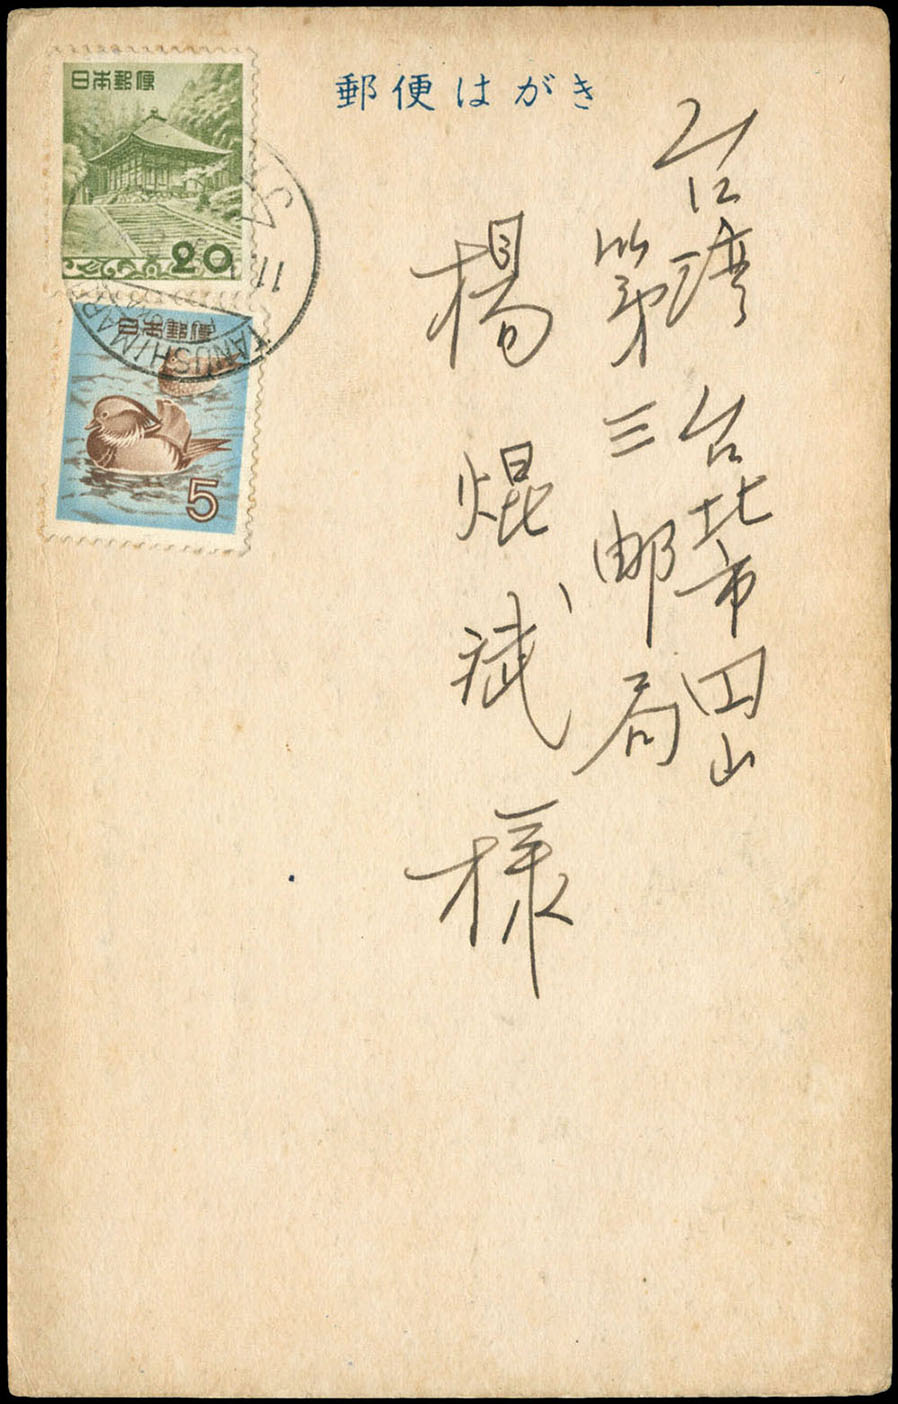 郵便はがき
日本郵便
20
日本郵便
5
TANUSHIMAR
11
台湾 台北市円山
第三邮局
楊焜斌様